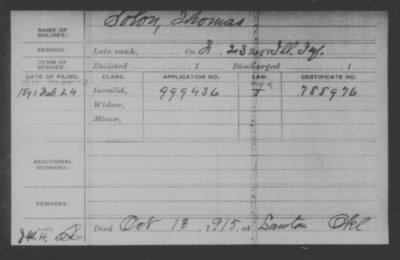 NAME OF SOLDIER: Solon, Thomas
SERVICE: Late rank, Co. K, 23 Ill. Inf.
TERM OF SERVICE: Enlisted , 1 Discharged , 1
DATE OF FILING. CLASS. APPLICATION NO. LAW. CERTIFICATE NO.
1891 Feb 24 Invalid, 999436 788976
Widow,
Minor,
ADDITIONAL SERVICES:
REMARKS:
Died Oct 13, 1915, at Lawton Okl